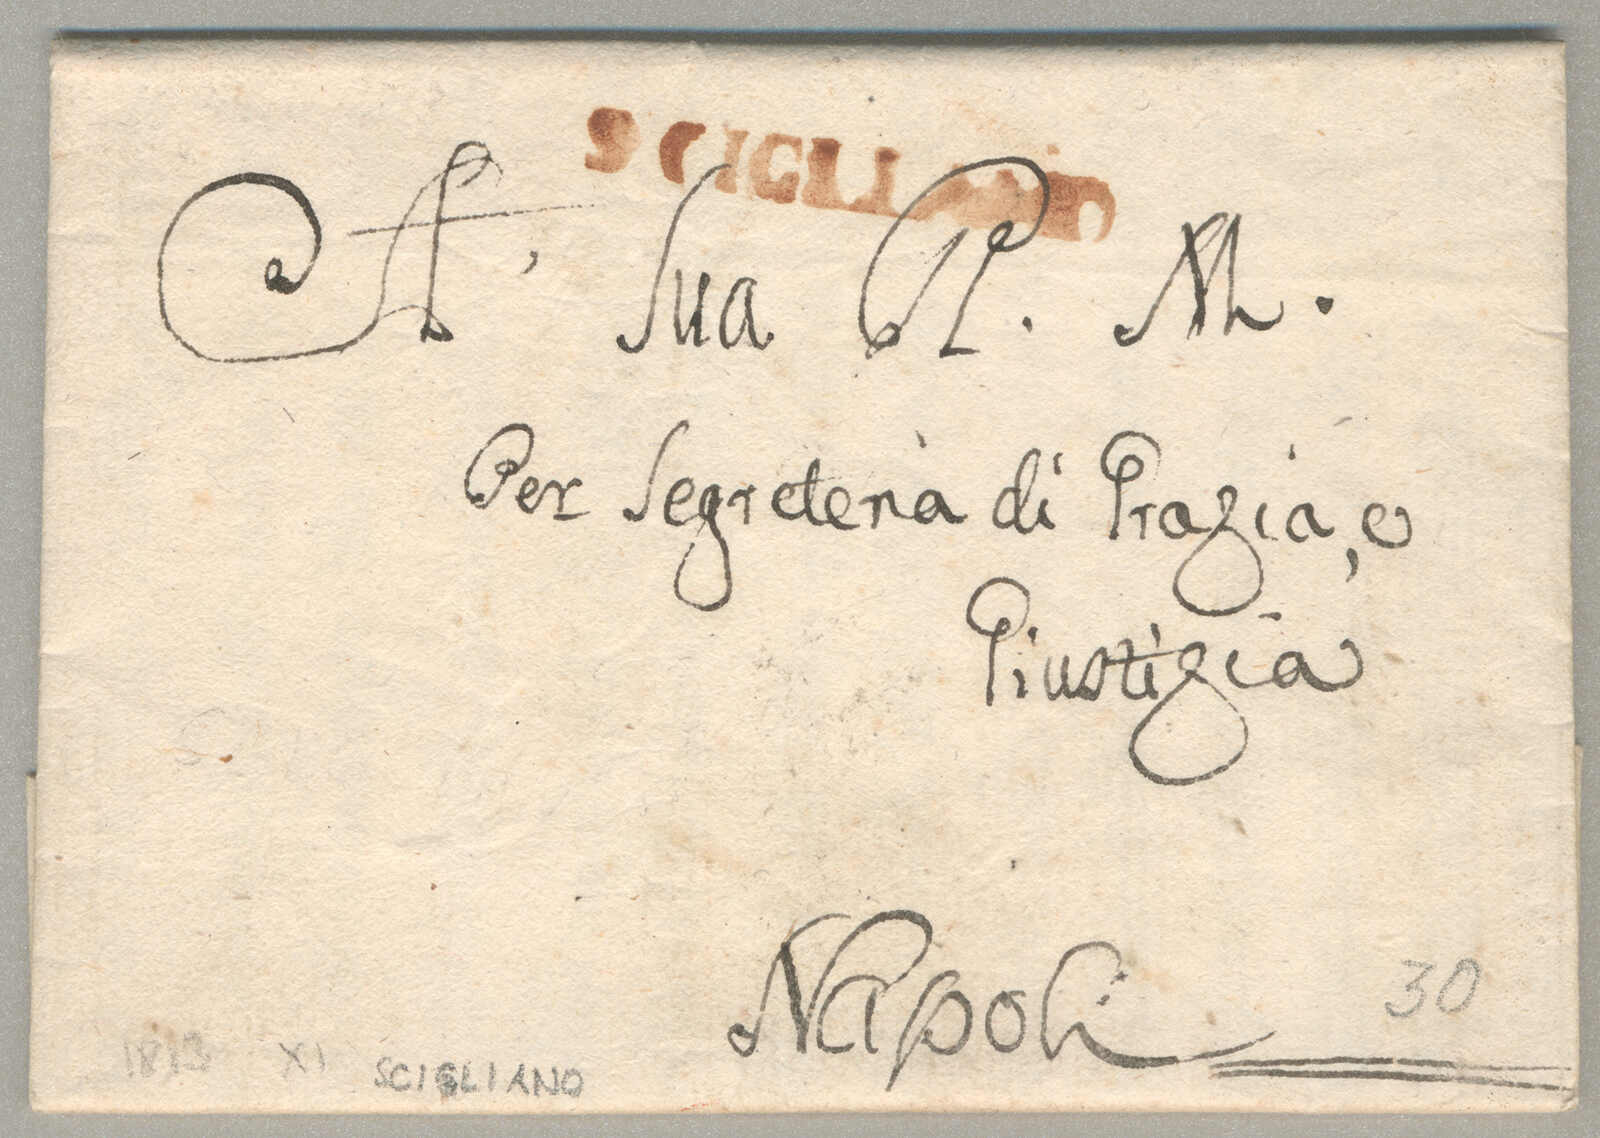 SCIGLIANO
A' Sua R. M.
Per Segreteria di Grazia, e
Giustizia
Napoli
30
1813 XI SCIGLIANO